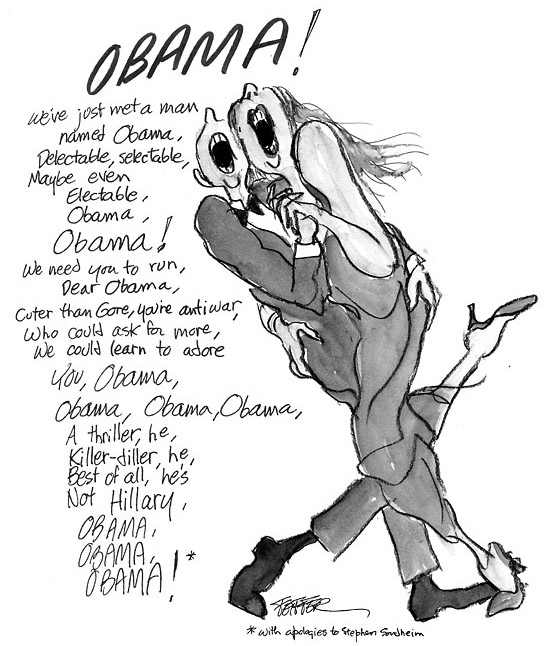 OBAMA!
We've just met a man
named Obama,
Delectable, selectable,
Maybe even
Electable,
Obama,
Obama!
We need you to run,
Dear Obama,
Cuter than Gore, you're antiwar,
Who could ask for more,
We could learn to adore
You, Obama,
Obama, Obama, Obama,
A thriller, he,
Killer-diller, he,
Best of all, he's
Not Hillary,
OBAMA,
OBAMA,
OBAMA! *
FEIFFER
* with apologies to Stephen Sondheim